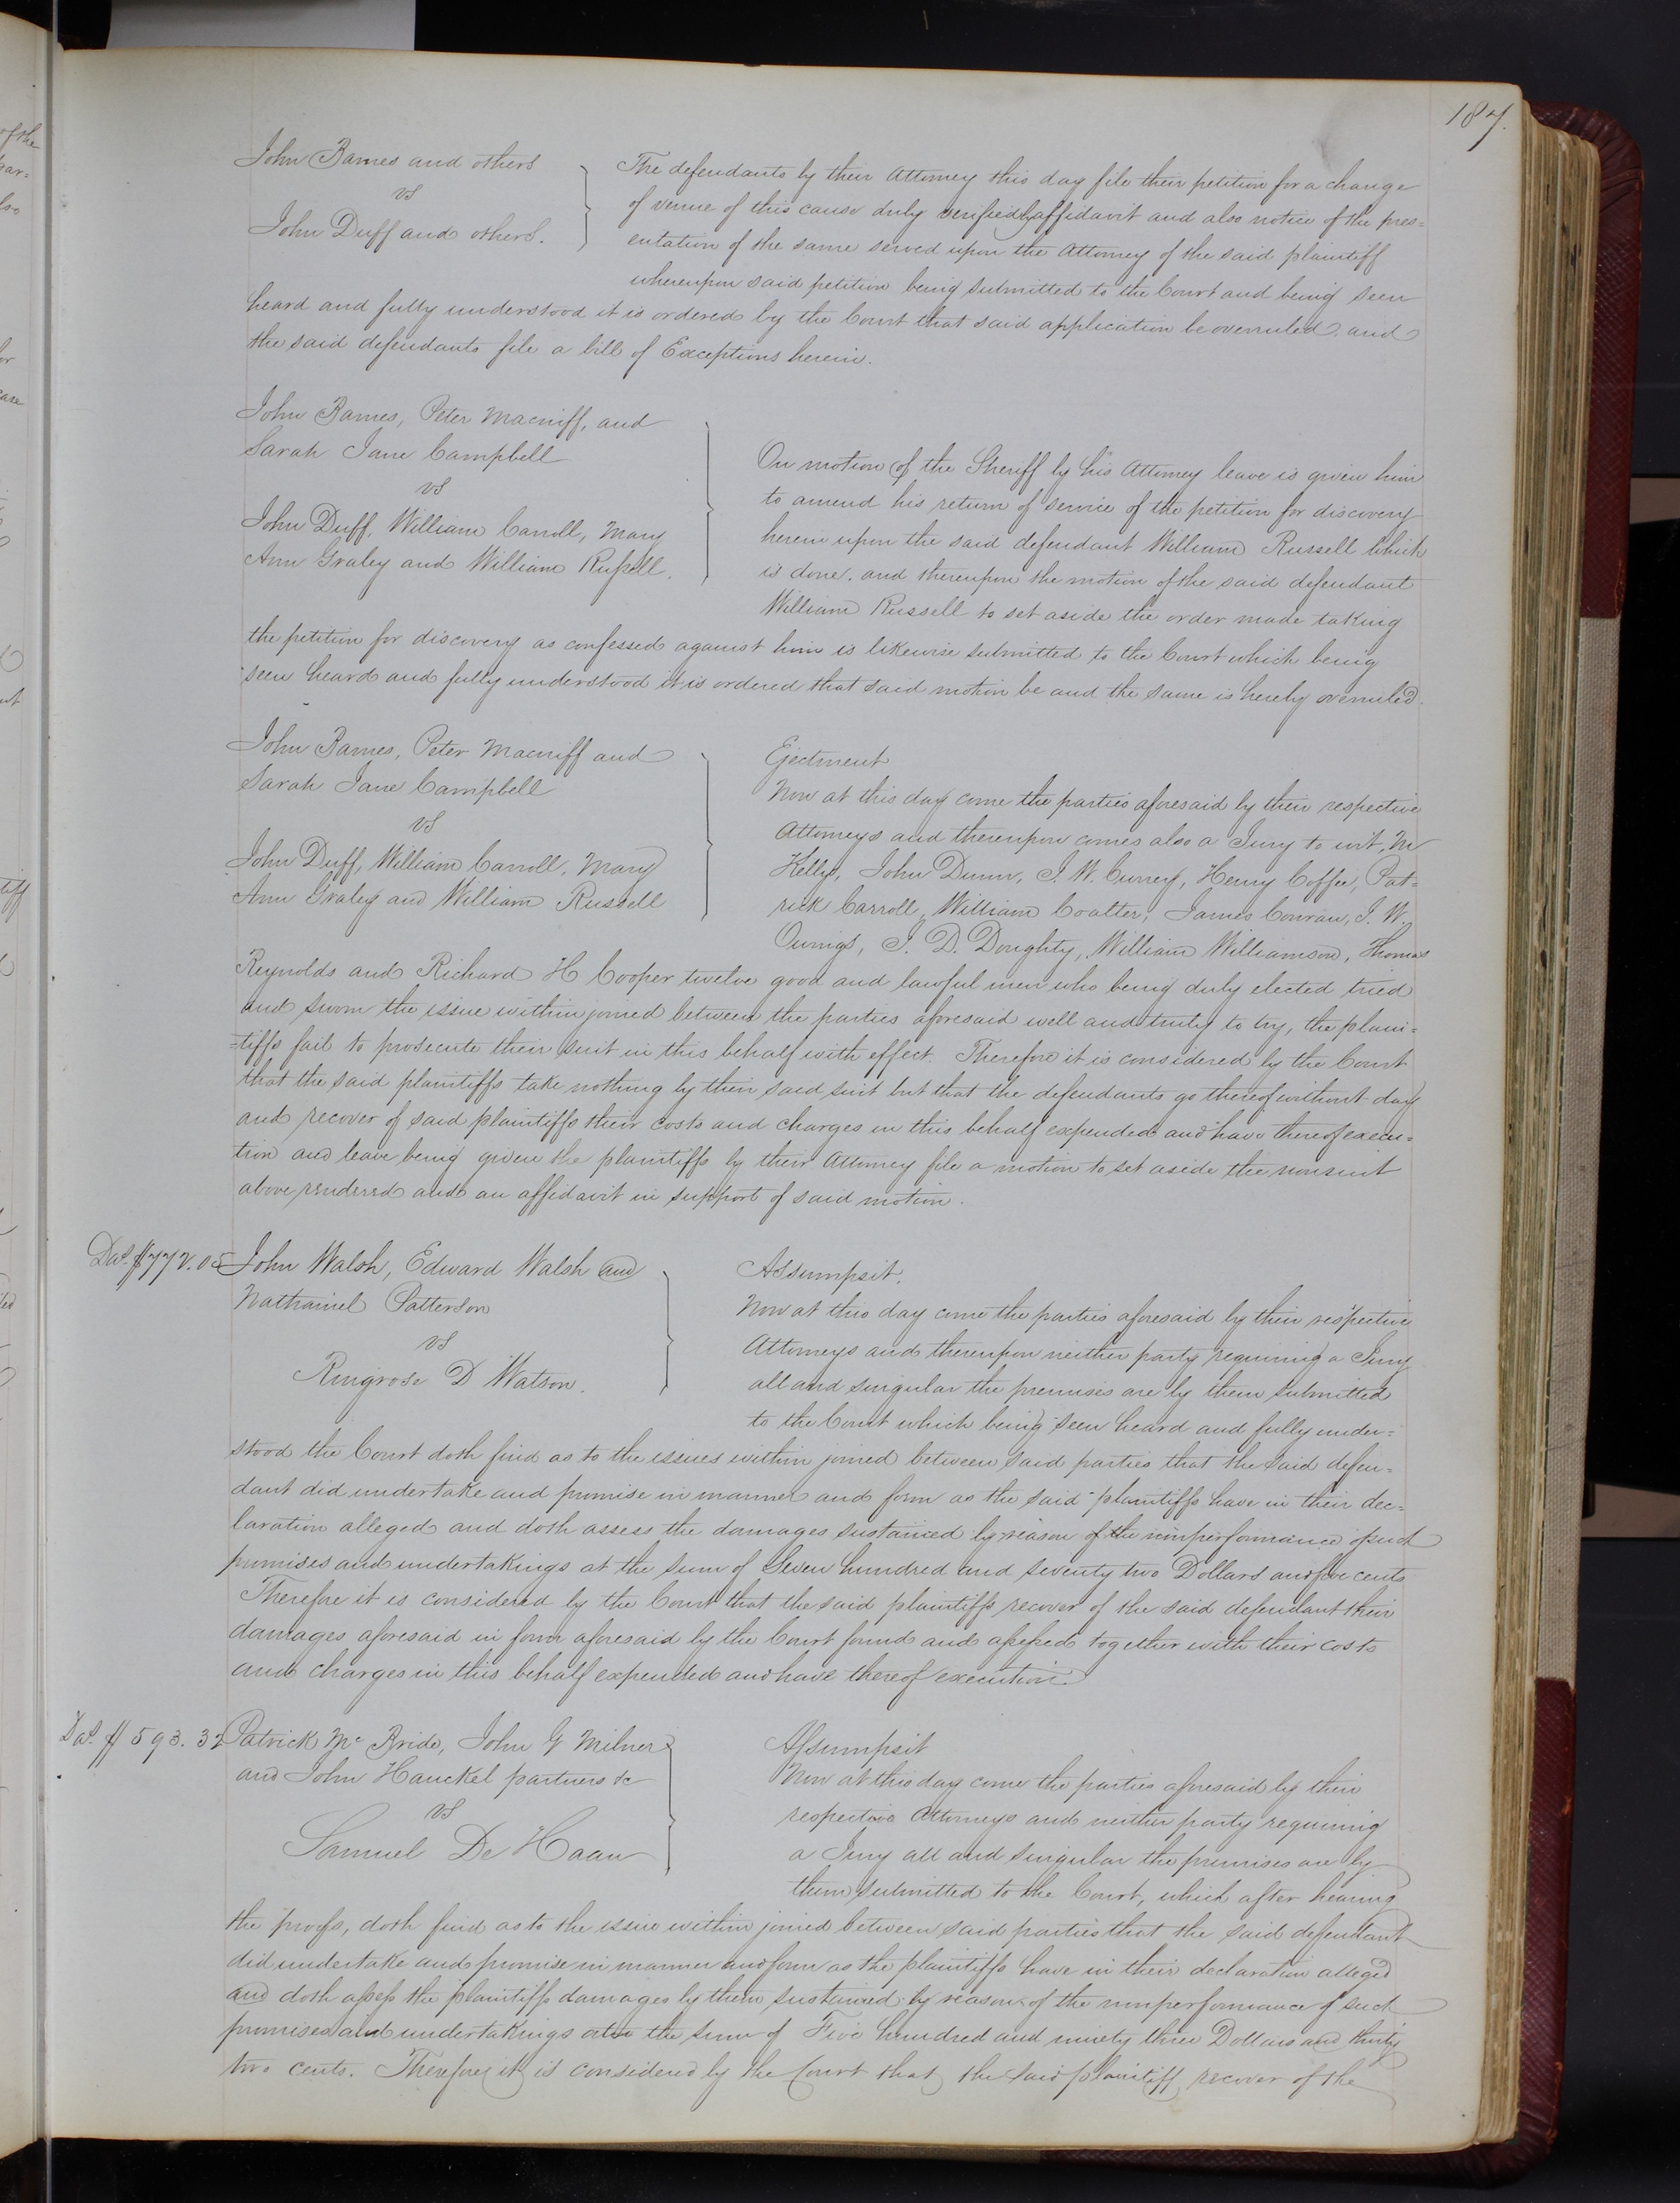 187.
John Barnes and others
vs
John Duff and others.
The defendants by their Attorney this day file their petition for a change
of venue of this cause duly verified by affidavit and also notice of the pres=
entation of the same served upon the Attorney of the said plaintiff
whereupon said petition being submitted to the Court and being seen
heard and fully understood it is ordered by the Court that said application be overruled. and
the said defendants file a bill of Exceptions herein.
John Barnes, Peter Macniff, and
Sarah Jane Campbell
vs
John Duff, William Carroll, Mary
Ann Graley and William Russell.
On motion of the Sheriff by his Attorney leave is given him
to amend his return of service of the petition for discovery
herein upon the said defendant William Russell which
is done. and thereupon the motion of the said defendant
William Russell to set aside the order made taking
the petition for discovery as confessed against him is likewise submitted to the Court which being
seen heard and fully understood it is ordered that said motion be and the same is hereby overruled.
John Barnes, Peter Macniff and
Sarah Jane Campbell
vs
John Duff, William Carroll, Mary
Ann Graley and William Russell
Ejectment
Now at this day come the parties aforesaid by their respective
Attorneys and thereupon comes also a Jury to wit, M
Kelly, John Dunn, J. W. Currey, Henry Coffee, Pat=
rick Carroll, William Coalter, James Conran, J. W.
Owings, J. D. Doughty, William Williamson, Thomas
Reynolds and Richard H Cooper twelve good and lawful men who being duly elected tried
and sworn the issue within joined between the parties aforesaid well and truly to try, the plain=
=tiffs fail to prosecute their suit in this behalf with effect. Therefore it is considered by the Court
that the said plaintiffs take nothing by their said suit but that the defendants go thereof without day
and recover of said plaintiffs their costs and charges in this behalf expended and have thereof execu=
tion and leave being given the plaintiffs by their Attorney file a motion to set aside the nonsuit
above rendered and an affidavit in support of said motion.
Das. $772.05
John Walsh, Edward Walsh and
Nathaniel Patterson
vs
Ringrose D Watson.
Assumpsit.
Now at this day come the parties aforesaid by their respective
Attorneys and thereupon neither party requiring a Jury
all and singular the premises are by them submitted
to the Court which being seen heard and fully under=
stood the Court doth find as to the issues within joined between said parties that the said defen=
dant did undertake and promise in manner and form as the said plaintiffs have in their dec=
laration alleged and doth assess the damages sustained by reason of the nonperformance of such
promises and undertakings at the sum of Seven hundred and seventy two Dollars and five cents
Therefore it is considered by the Court that the said plaintiffs recover of the said defendant their
damages aforesaid in form aforesaid by the Court found and assessed together with their costs
and charges in this behalf expended and have thereof execution.
Das. $593.32
Patrick Mc Bride, John G Milner
and John Hauckel partners &c
vs
Samuel De Haan
Assumpsit
Now at this day come the parties aforesaid by their
respective Attorneys and neither party requiring
a Jury all and singular the premises are by
them submitted to the Court, which after hearing
the proofs, doth find as to the issue within joined between said parties that the said defendant
did undertake and promise in manner and form as the plaintiffs have in their declaration alleged
and doth assess the plaintiffs damages by them sustained by reason of the nonperformance of such
promises and undertakings at the sum of Five hundred and ninety three Dollars and thirty
two cents. Therefore it is considered by the Court that the said plaintiff recover of the